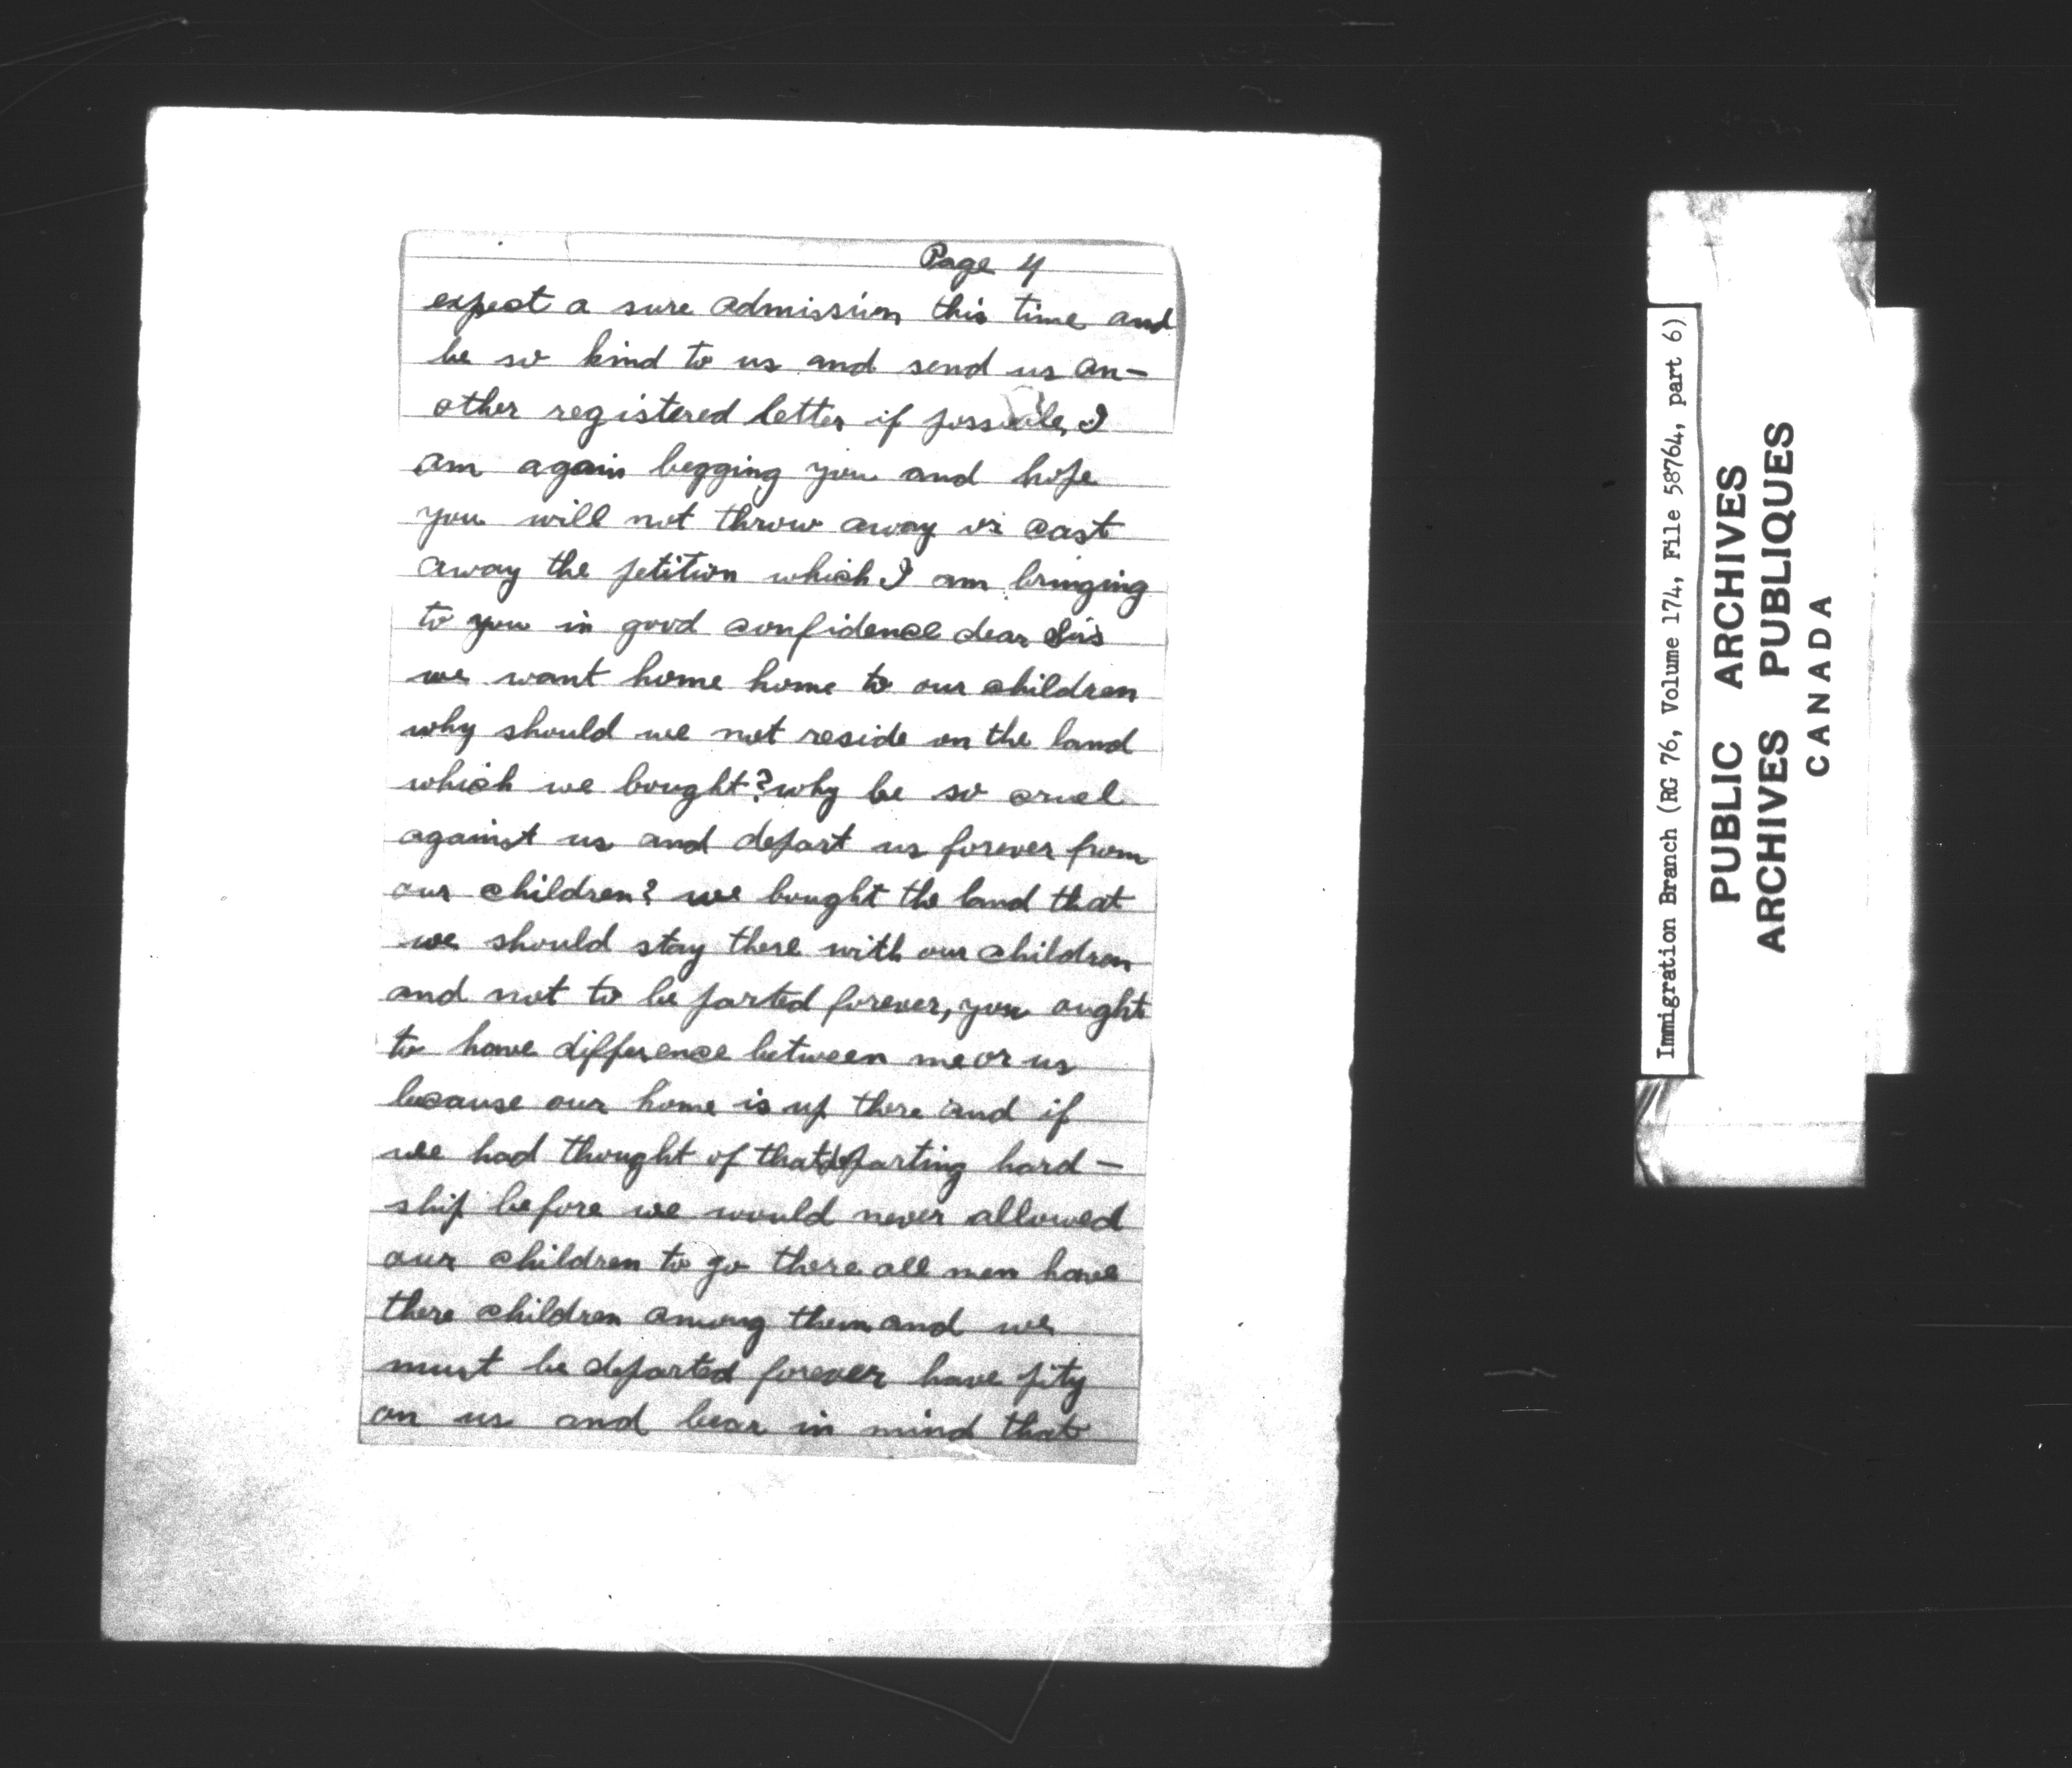 Page 4
expect a sure admission this time and
be so kind to us and send us an-
other registered letter if possible, I
am again begging you and hope
you will not throw away or cast
away the petition which I am bringing
to you in good confidence dear Sirs
we want home home to our children
why should we not reside on the land
which we bought? why be so cruel
against us and depart us forever from
our children? we bought the land that
we should stay there with our children
and not to be parted forever, you ought
to have difference between me or us
because our home is up there and if
we had thought of that departing hard-
ship before we would never allowed
our children to go there all men have
there children among them and we
must be departed forever have pity
on us and bear in mind that
Immigration Branch (RG 76, Volume 174, File 58764, part 6)
PUBLIC ARCHIVES
ARCHIVES PUBLIQUES
CANADA